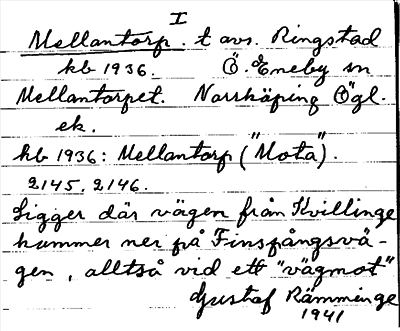 I
Mellantorp. t avs. Ringstad
kb 1936. Ö. Eneby sn
Mellantorpet. Norrköping Ögl.
ek.
kb 1936: Mellantorp ("Mota").
2145, 2146.
Ligger där vägen från Kvillinge
kommer ner på Finspångsvä-
gen, alltså vid ett "vägmot"
Gustaf Rämminge
1941